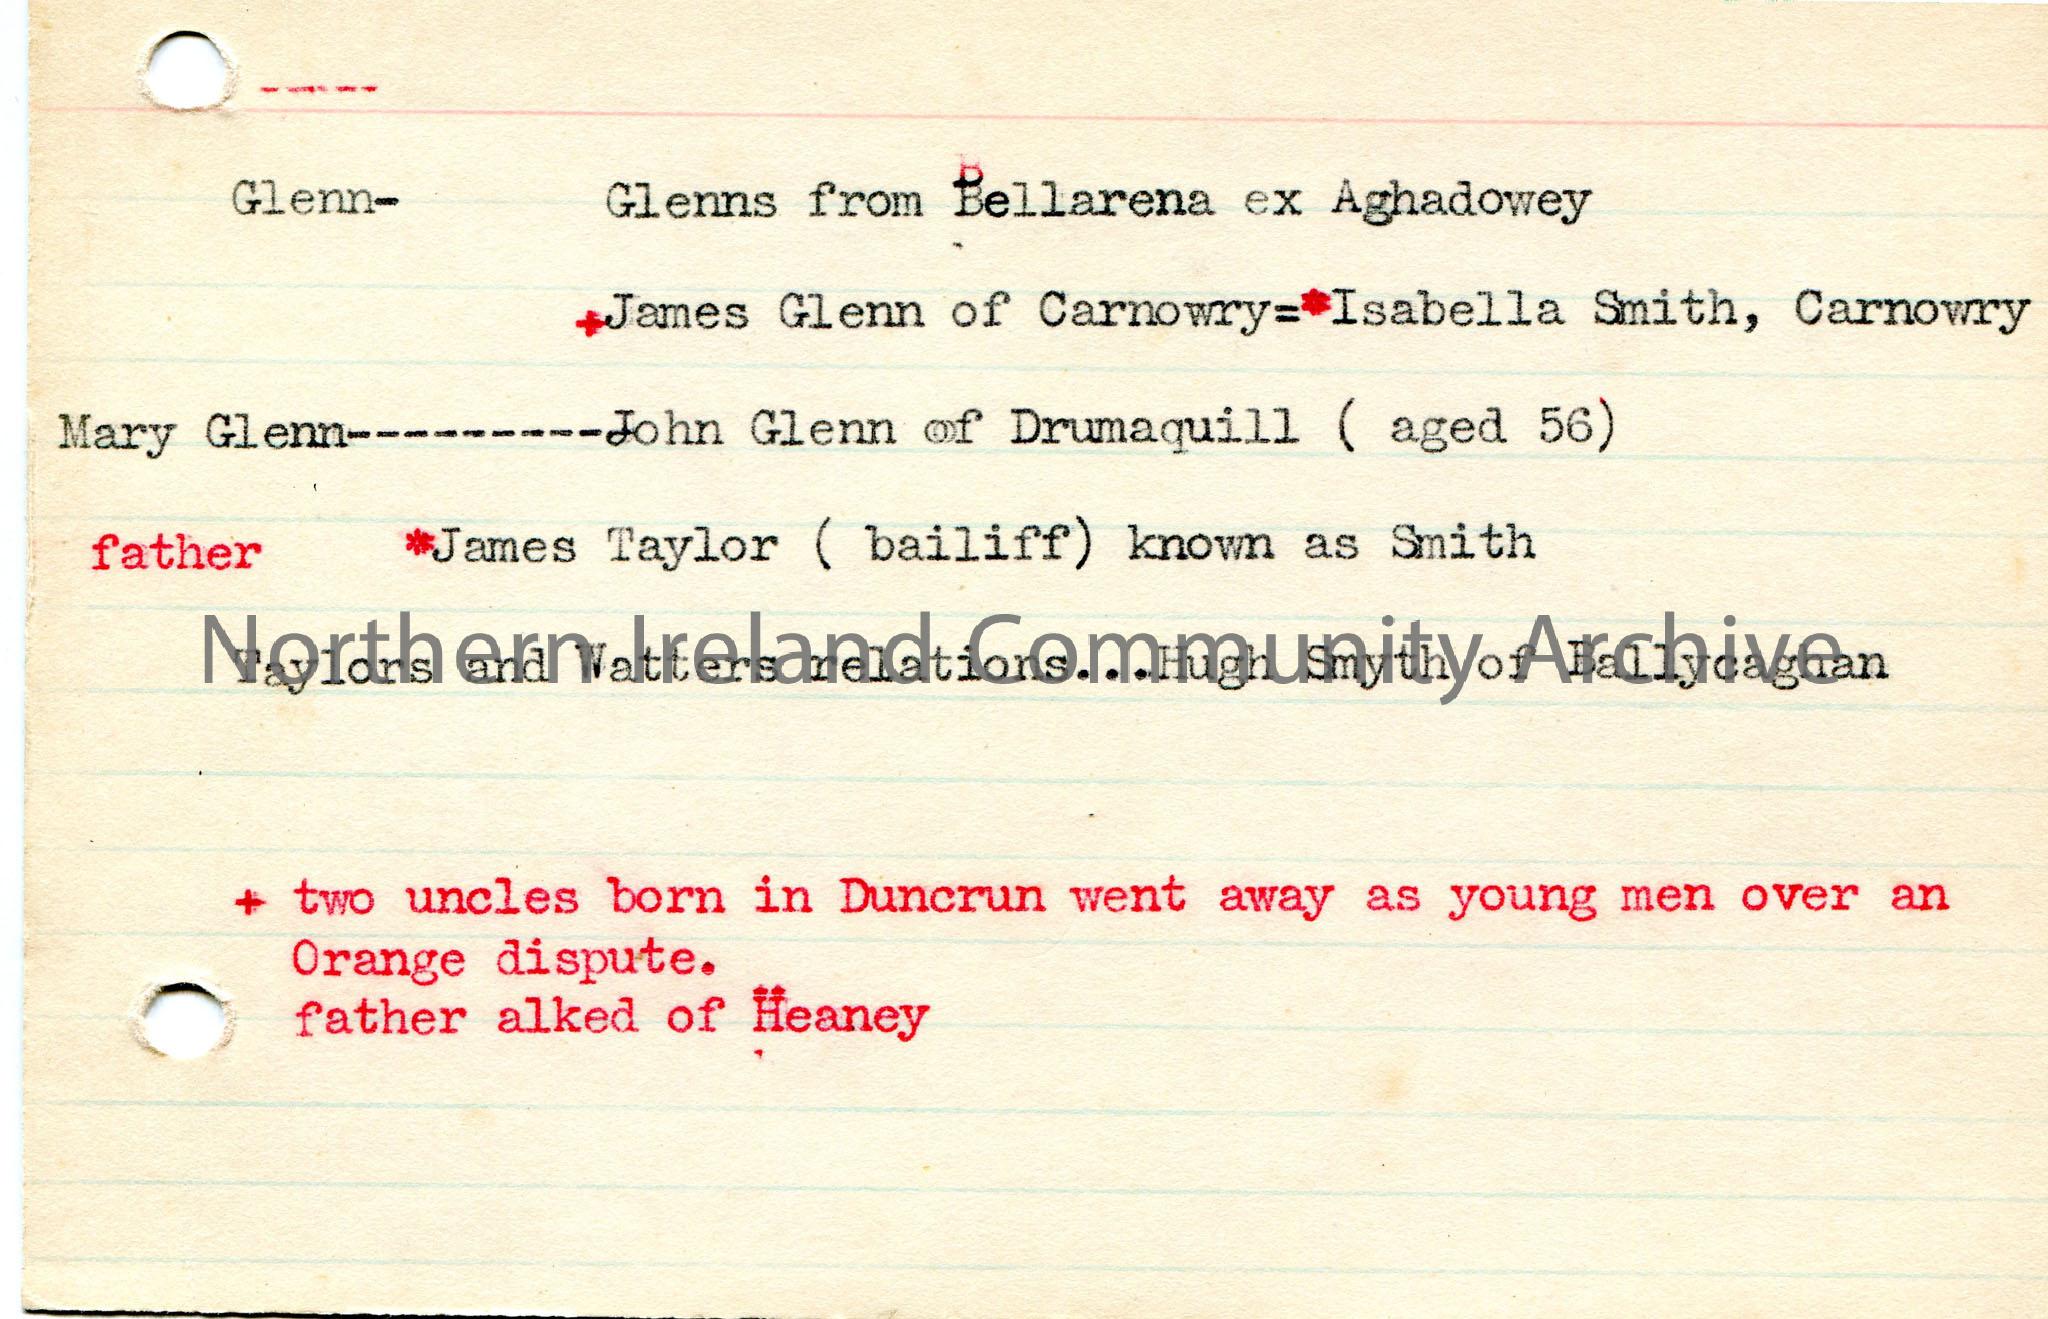 -----
Glenn- Glenns from Bellarena ex Aghadowey
+James Glenn of Carnowry=*Isabella Smith, Carnowry
Mary Glenn----------John Glenn of Drumaquill ( aged 56)
father *James Taylor ( bailiff) known as Smith
Northern Ireland Community Archive
Taylors and Watters relations...Hugh Smyth of Ballycaghan
+ two uncles born in Duncrun went away as young men over an
Orange dispute.
father alked of Heaney